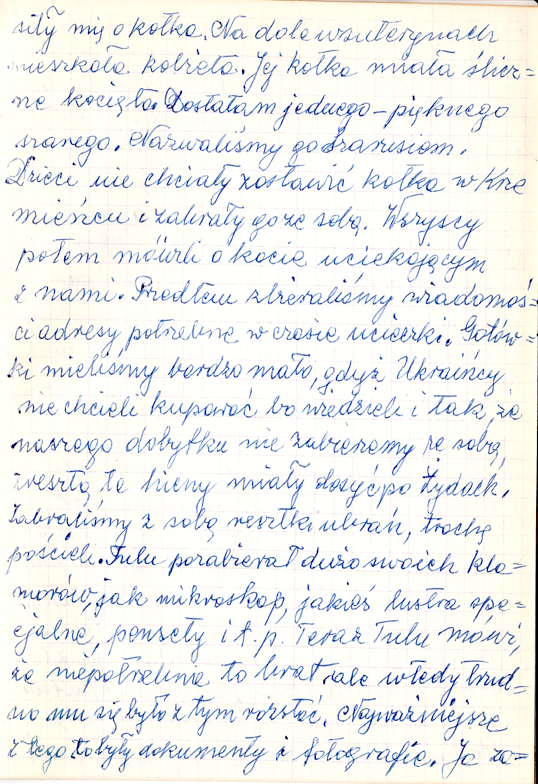 siły mię o kotka. Na dole w suterynach
mieszkała kobieta. Jej kotka miała ślicz=
ne kocięta. Dostałam jednego - pięknego
szarego. Nazwaliśmy go Szarusiem.
Dzieci nie chciały zostawić kotka w Krze
mieńcu i zabrały go ze sobą. Wszyscy
potem mówili o kocie uciekającym
z nami. Przedtem zbieraliśmy wiadomoś=
ci adresy potrzebne w czasie ucieczki. Gotów=
ki mieliśmy bardzo mało, gdyż Ukraińcy
nie chcieli kupować bo wiedzieli i tak, że
naszego dobytku nie zabierzemy ze sobą,
zresztą te hieny miały dosyć po Żydach.
Zabraliśmy z sobą resztki ubrań, trochę
pościeli. Tulu pozabierał dużo swoich kla=
morów, jak mikroskop, jakieś lustra spe=
cjalne, pensety i t.p. Teraz Tulu mówi,
że niepotrzebnie to brał, ale wtedy trud=
no mu się było z tym rozstać. Najważniejsze
z tego to były dokumenty i fotografie. Ja za=